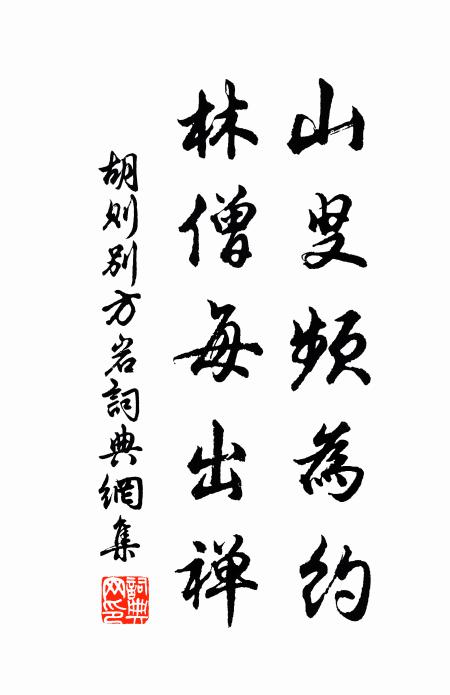 山叟頻為約
林僧每出禅
胡则别方岩詞典網集
詞典
网印